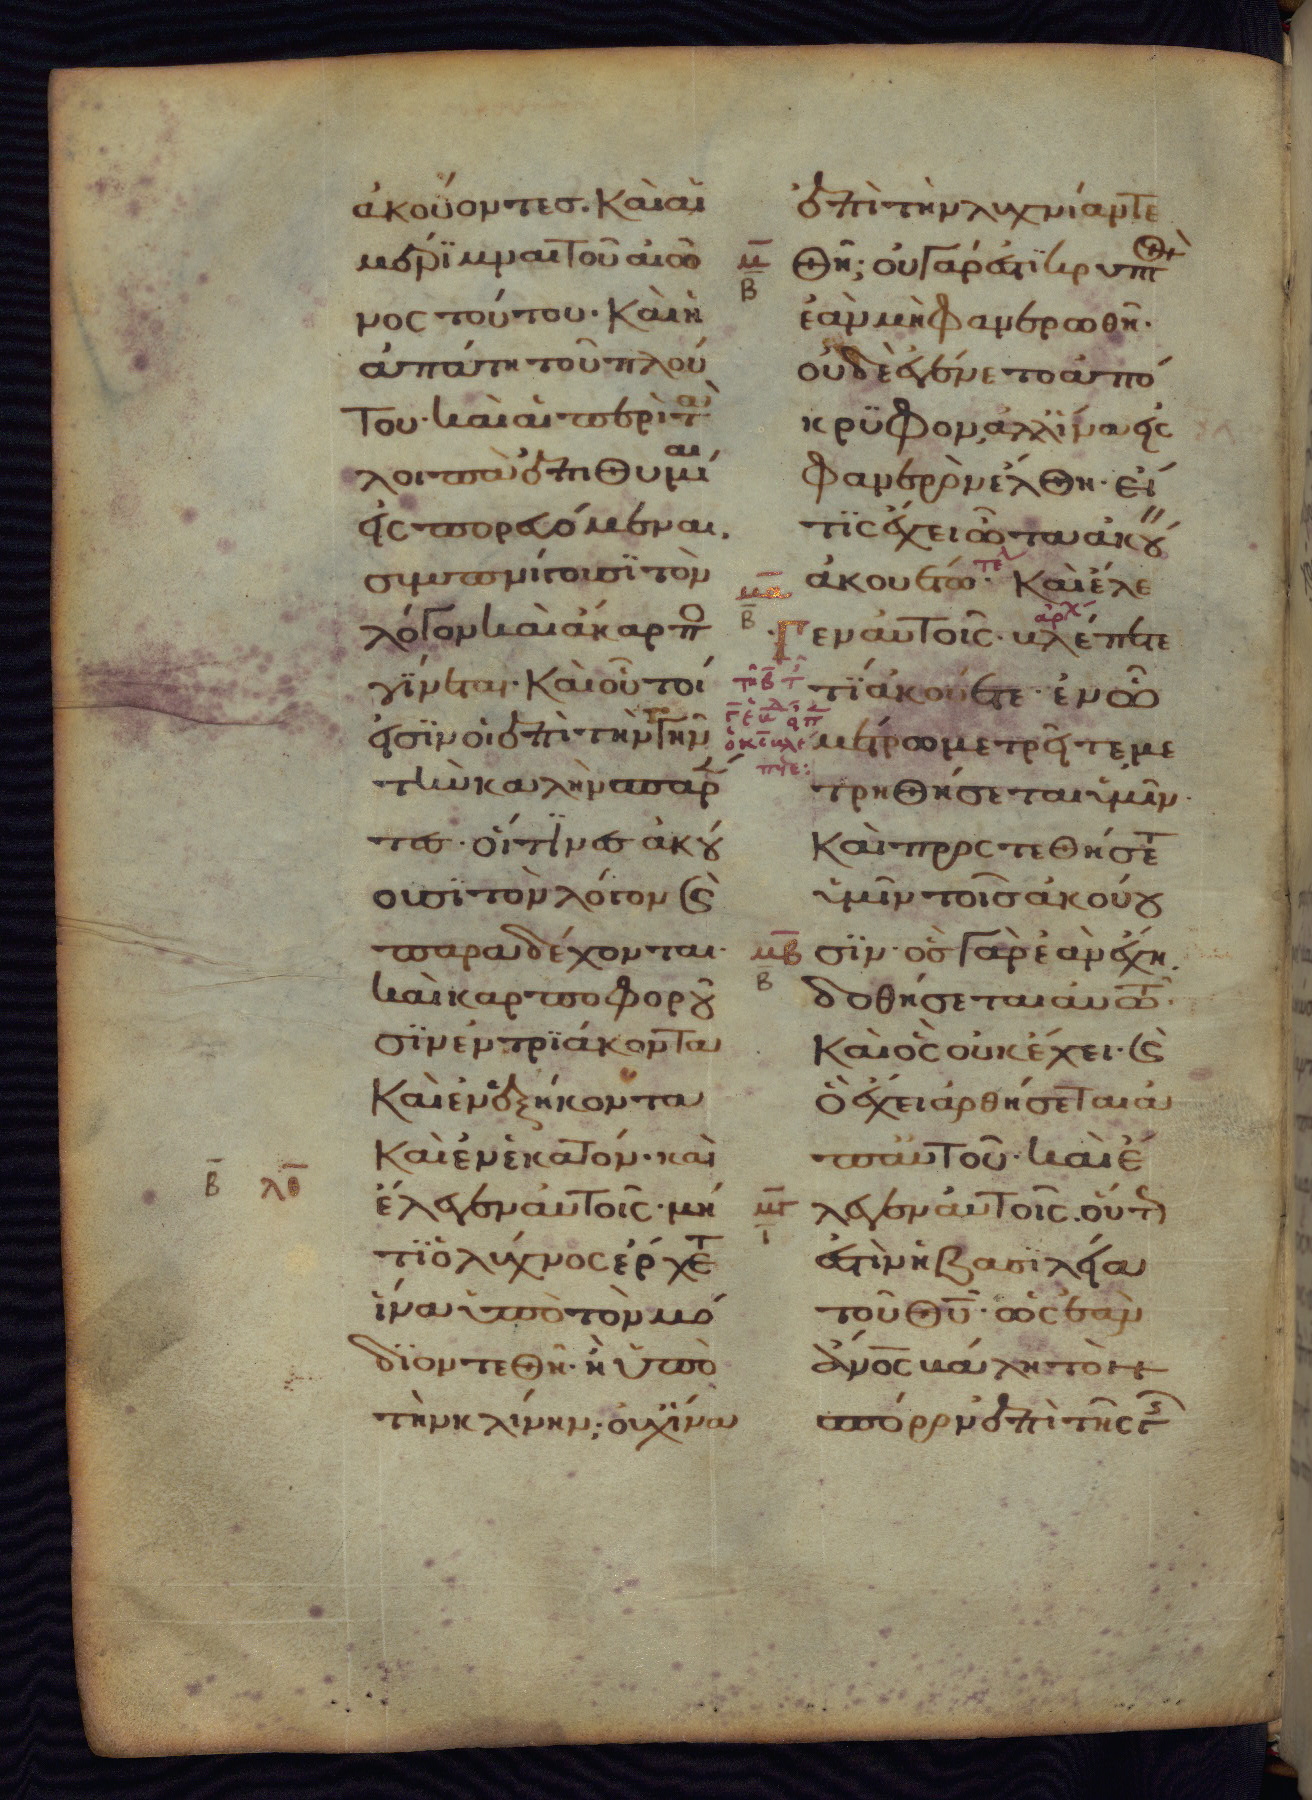 ἀκούοντεσ. Καὶ αἱ
μέριμναι τοῦ αἰῶ
νος τούτου· Καὶ ἡ
ἀπάτη τοῦ πλού
του· καὶ αἱ περὶ τὰ
λοιπὰ ἐπιθυμίαι
εἰσπορευόμεναι.
συμπνίγουσϊ τὸν
λόγον καὶ ἄκαρπο
γίνεται· Καὶ οὗτοί
εἰσϊν οἱ ἐπὶ τὴν γῆν
τὴν καλὴν σπαρέ
τες· οἵτϊνες ἀκού
ουσϊ τὸν λόγον ϗ
παραδέχονται·
καὶ καρποφοροῦ
σϊν ἐν τρϊάκοντα
Καὶ ἐν ἑξήκοντα
Καὶ ἐν ἑκατόν· καὶ
β̅ λθ̅ ἔλεγεν αὐτοῖς· μή
τϊ ὁ λύχνος ἔρχετ
ἵνα ὑπὸ τὸν μό
δϊον τεθῆ· ἢ ὑπὸ
τὴν κλίνην; οὐχ ἵνα
ἐπὶ τὴν λυχνίαν τε
μ̅ β θῆ; οὐ γάρ ἐστϊ κρυπτὸ
ἐὰν μὴ φανερωθῆ·
οὐδὲ ἐγένετο ἀπό
κρϋφον, ἀλλ' ἵνα εἰς
φανερὸν ἔλθη· εἴ
τϊς ἔχει ὦτα ἀκού
ἀκουέτω· τελ Καὶ ἔλε
μα̅ β γεν αὐτοῖς· ἀρχ βλέπετε
τϊ ἀκούετε· ἐν ὧ
μέτρω μετρεῖτε, με
τρηθήσεται ὑμῖν·
Καὶ προςτεθήσετ
ὑμῖν τοῖσ ἀκούου
μβ̅ β σϊν· ὃς γὰρ ἐὰν ἔχη.
δοθήσεται αὐτῶ·
Καὶ ὃς οὐκ ἔχει· ϗ
ὃ ἔχει ἀρθήσεται ἀ
π' αὐτοῦ· καὶ ἔ
μγ̅ ι λεγεν αὐτοῖς. οὕτως
ἐστὶν ἡ βασϊλεία
τοῦ θυ̅· ὡς ἐὰν
ἄνος̅ βάλη τὸν
σπόρον ἐπὶ τῆς γ